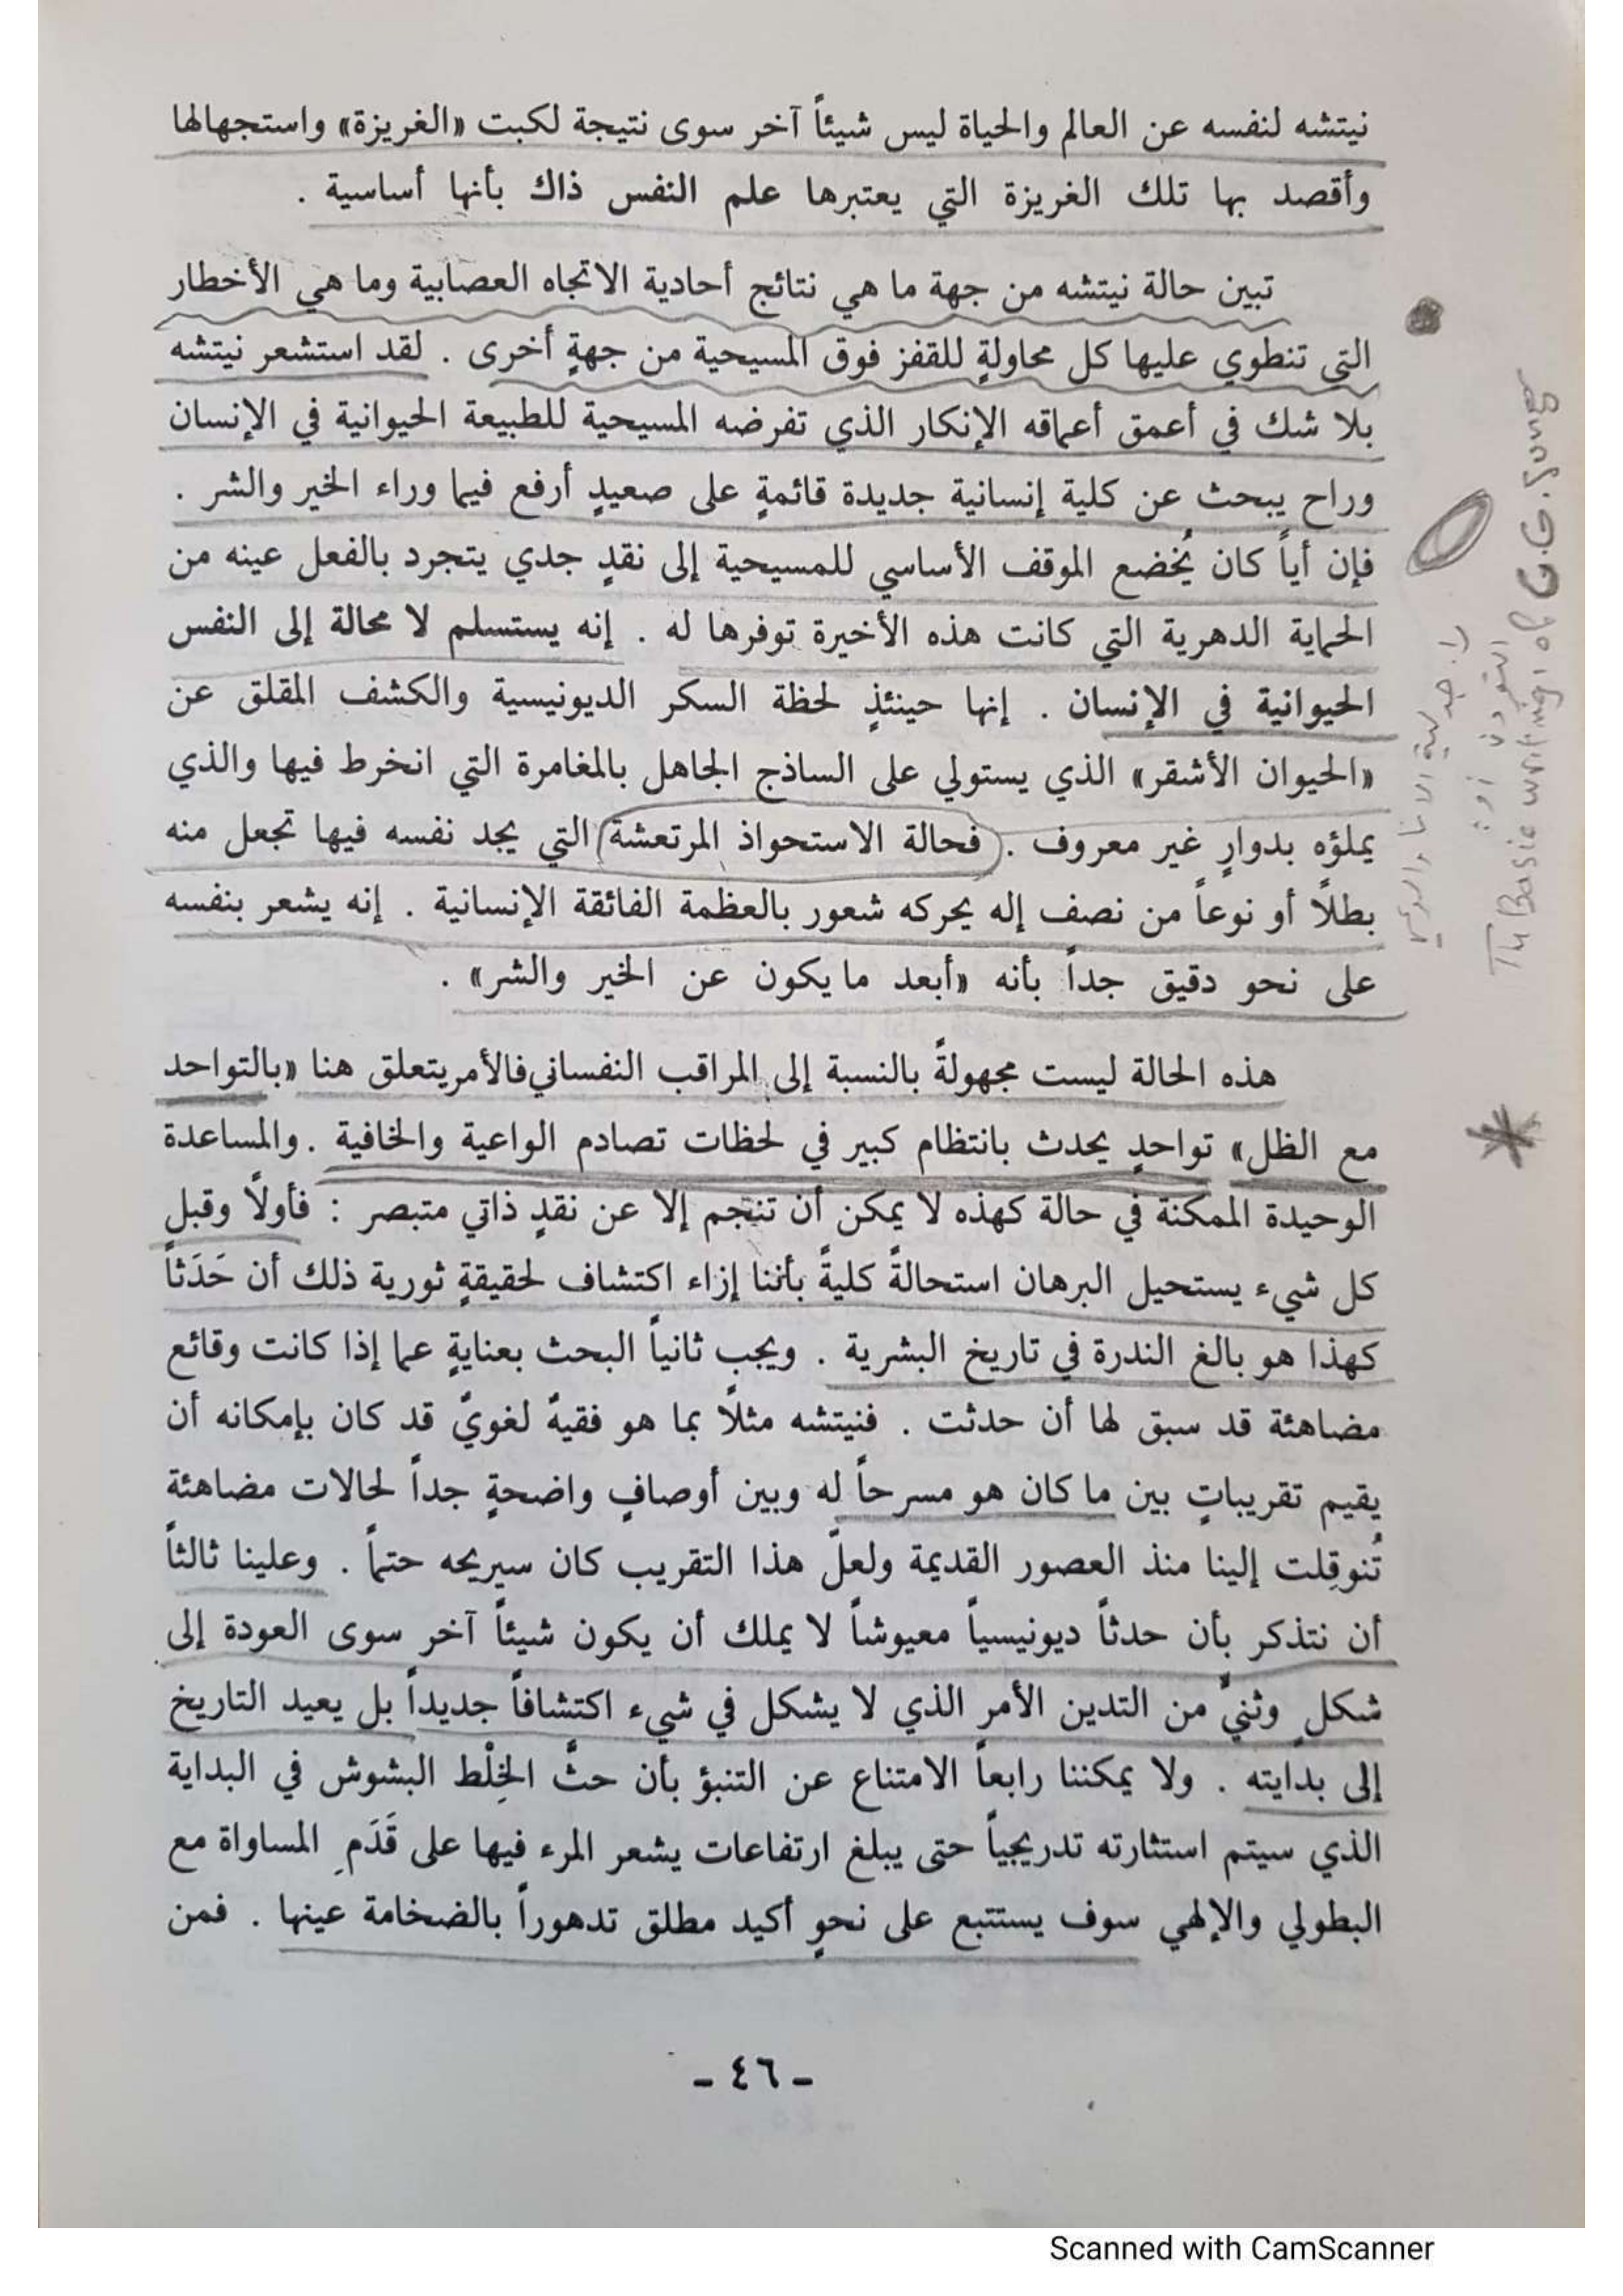 نيتشه لنفسه عن العالم والحياة ليس شيئاً آخر سوى نتيجة لكبت «الغريزة» واستجهالها
وأقصد بها تلك الغريزة التي يعتبرها علم النفس ذاك بأنها أساسية .
تبين حالة نيتشه من جهة ما هي نتائج أحادية الاتجاه العصابية وما هي الأخطار
التي تنطوي عليها كل محاولةٍ للقفز فوق المسيحية من جهةٍ أخرى . لقد استشعر نيتشه
بلا شك في أعمق أعماقه الإنكار الذي تفرضه المسيحية للطبيعة الحيوانية في الإنسان
وراح يبحث عن كلية إنسانية جديدة قائمةٍ على صعيدٍ أرفع فيما وراء الخير والشر .
فإن أياً كان يُخضع الموقف الأساسي للمسيحية إلى نقدٍ جدي يتجرد بالفعل عينه من
الحماية الدهرية التي كانت هذه الأخيرة توفرها له . إنه يستسلم لا محالة إلى النفس
الحيوانية في الإنسان . إنها حينئذٍ لحظة السكر الديونيسية والكشف المقلق عن
«الحيوان الأشقر» الذي يستولي على الساذج الجاهل بالمغامرة التي انخرط فيها والذي
يملؤه بدوارٍ غير معروف . فحالة الاستحواذ المرتعشة التي يجد نفسه فيها تجعل منه
بطلاً أو نوعاً من نصف إله يحركه شعور بالعظمة الفائقة الإنسانية . إنه يشعر بنفسه
على نحو دقيق جداً بأنه «أبعد ما يكون عن الخير والشر» .
هذه الحالة ليست مجهولةً بالنسبة إلى المراقب النفساني فالأمر يتعلق هنا «بالتواحد
مع الظل» تواحدٍ يحدث بانتظام كبير في لحظات تصادم الواعية والخافية . والمساعدة
الوحيدة الممكنة في حالة كهذه لا يمكن أن تنجم إلا عن نقدٍ ذاتي متبصر : فأولاً وقبل
كل شيء يستحيل البرهان استحالةً كليةً بأننا إزاء اكتشاف لحقيقةٍ ثورية ذلك أن حَدَثاً
كهذا هو بالغ الندرة في تاريخ البشرية . ويجب ثانياً البحث بعنايةٍ عما إذا كانت وقائع
مضاهئة قد سبق لها أن حدثت . فنيتشه مثلاً بما هو فقيهٌ لغويٌ قد كان بإمكانه أن
يقيم تقريباتٍ بين ما كان هو مسرحاً له وبين أوصافٍ واضحةٍ جداً لحالات مضاهئة
تُنوقِلت إلينا منذ العصور القديمة ولعلّ هذا التقريب كان سيريحه حتماً . وعلينا ثالثاً
أن نتذكر بأن حدثاً ديونيسياً معيوشاً لا يملك أن يكون شيئاً آخر سوى العودة إلى
شكلٍ وثنيٍّ من التدين الأمر الذي لا يشكل في شيء اكتشافاً جديداً بل يعيد التاريخ
إلى بدايته . ولا يمكننا رابعاً الامتناع عن التنبؤ بأن حثَّ الخِلْط البشوش في البداية
الذي سيتم استثارته تدريجياً حتى يبلغ ارتفاعات يشعر المرء فيها على قَدَمِ المساواة مع
البطولي والإلهي سوف يستتبع على نحوٍ أكيد مطلق تدهوراً بالضخامة عينها . فمن
- ٤٦ -
جدلية الانا
Basic writing of C.G. Jung
Scanned with CamScanner